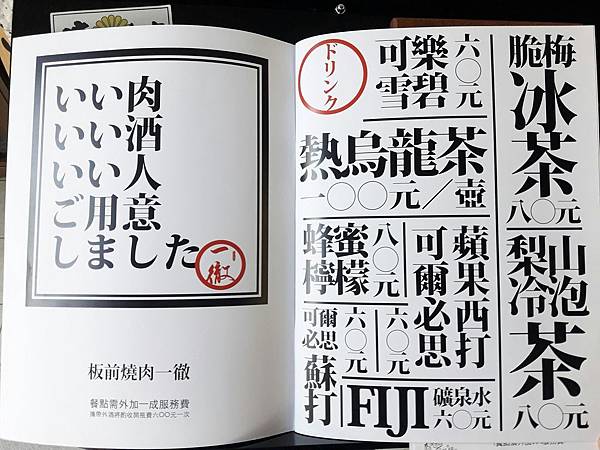 いい肉
いい酒
いい人
ご用意
しました
一徹
板前燒肉一徹
餐點需外加一成服務費
攜帶外酒將酌收開瓶費六〇〇元一次
ドリンク
可樂
雪碧
六〇元
熱烏龍茶
一〇〇元／壺
蜂蜜
檸檬
八〇元
蘋果西打
可爾必思
六〇元
可爾必思
蘇打
六〇元
FIJI
礦泉水
六〇元
脆梅
冰茶
八〇元
梨山
冷泡
茶
八〇元